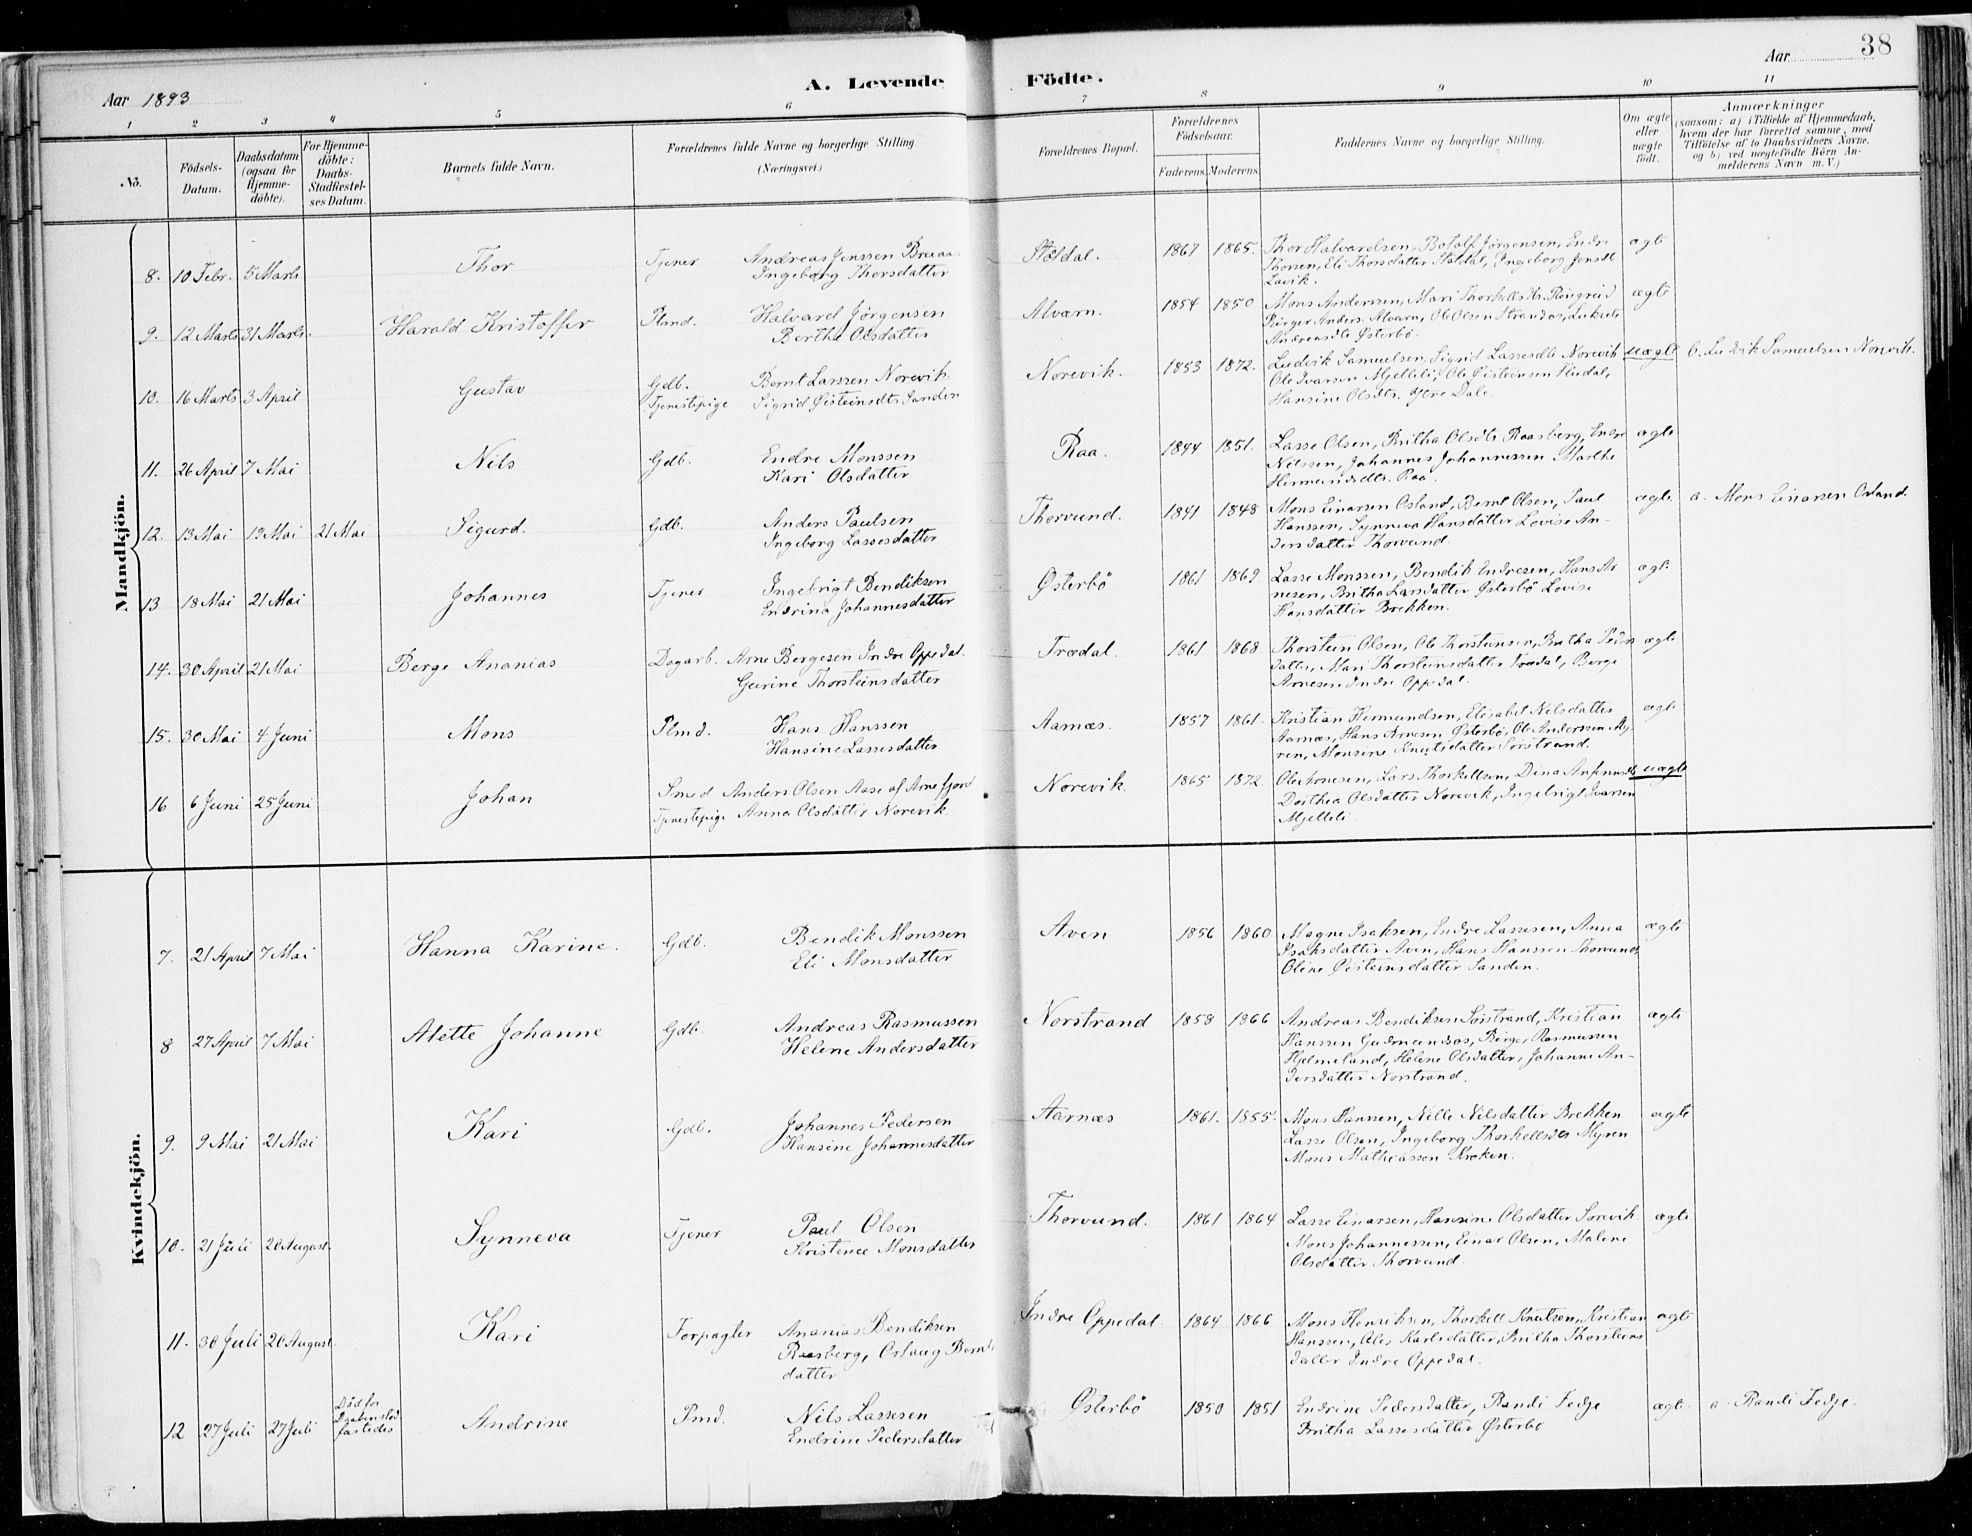 38
Aar 1893
A. Levende Födte.
Aar
1 2 3 4 5 6 7 8 9 10 11
No.
Födsels-Datum.
Daabsdatum (ogsaa for Hjemme-döbte).
For Hjemme-döbte: Daabs-Stadfæstel-ses Datum.
Barnets fulde Navn.
Forældrenes fulde Navne og borgerlige Stilling (Næringsvei.)
Forældrenes Bopæl.
Forældrenes Födselsaar.
Faderens. Moderens.
Faddernes Navne og borgerlige Stilling.
Om ægte eller uægte födt.
Anmærkninger (saasom: a) i Tilfælde af Hjemmedaab, hvem der har forrettet samme, med Tilföielse af to Daabsvidners Navne, og b) ved uægtefödte Börn Anmelderens Navn m. V.)
Mandkjön.
8. 10 Febr. 5 Marts Thor Tjener Andreas Jenssen Ingeborg Thorsdatter Stöldal. 1867 1865. Thor Halvardsen, Botolf Jörgensen, Endre Thorsen, Eli Thorsdatter Stöldal, Ingeborg Jensdt Lavik. ægte
9. 12 Marts 31 Marts Harald Kristoffer Plmd. Halvard Jörgensen Berthe Olsdatter Alværn. 1854 1850 Mons Anderssen, Mari Thorkellsdtr. Ringreid Börger Anders. Alværn, Ole Olsen Strandos, Andreasdtr Østerbö. ægte
10. 16 Marts 3 April Gustav Gdb. Bernt Larssen Norevik. Tjenestepige Sigrid Øisteinsdtr Sanden Norevik. 1853 1872. Ludvik Samuelsen, Sigrid Lassesdtr Norevik Ole Ivarsen Mjelleli, Ole Øisteinsen Husdal, Hansine Olsdtr. ytre Dale. uægte b. Ludvik Samuelsen Norevik.
11. 26 April 7 Mai Nils Gdb. Endre Monssen Kari Olsdatter Raa. 1844 1851. Lasse Olsen, Britha Olsdtr Raasberg, Endre Nilssen, Johannes Johannessen Marthe Hermundsdtr. Raa. ægte
12. 13 Mai 13 Mai 21 Mai Sigurd. Gdb. Anders Paulsen Ingeborg Lassesdatter Thorvund. 1841 1848 Mons Einarsen Osland, Bernt Olsen, Paul Hanssen, Synneva Hansdatter Lovise Andersdatter Thorvund. ægte a. Mons Einarsen Osland.
13 18 Mai 21 Mai Johannes Tjener Ingebrigt Bendiksen Endrina Johannesdatter Østerbö 1861 1869 Lasse Monssen, Bendik Endresen, Hans Arnesen, Britha Larsdatter Østerbö Lovise Hansdatter Brekken. ægte
14. 30 April 21 Mai Berge Ananias Dagarb. Arne Bergesen Indre Oppedal. Gurine Thorsteinsdatter Trædal. 1861 1868 Thorstein Olsen, Ole Thorsteinsen, Britha Peders datter, Mari Thorsteinsdatter Trædal, Berge Arnesen Indre Oppedal. ægte
15. 30 Mai 4 Juni Mons Plmd. Hans Hanssen Hansine Lassesdatter Aarnæs. 1857 1861. Kristian Hermundsen, Elisabet Nilsdatter Aarnæs, Hans Arnesen Østerbö, Ole Anderssen Myren, Monsine Knutsdatter Sörstrand. ægte
16 6 Juni 25 Juni Johan Smed Anders Olsen Aase af Arnefjord Tjenestepige Anna Olsdatter Norevik. Norevik. 1865 1872. Ole Arnesen, Lars Thorkellsen, Dina Anfinnsdtr Dorthea Olsdatter Norevik, Ingebrigt Ivarsen Mjelleli. uægte
Kvindekjön.
7. 21 April 7 Mai Hanna Karine. Gdb. Bendik Monssen Eli Monsdatter Aven 1856 1860 Magne Isaksen, Endre Lassesen, Anna Isaksdatter Aven, Hans Hanssen Thorvund, Oline Øisteinsdatter Sanden. ægte
8 27 April 7 Mai Alette Johanne Gdb. Andreas Rasmussen Helene Andersdatter Norstrand 1858 1866 Andreas Bendiksen Sörstrand, Kristian Hanssen, Börge Rasmussen Hjelmeland, Helene Olsdatter, Johanne Andersdatter Norstrand. ægte
9. 9 Mai 21 Mai Kari Gdb. Johannes Pedersen Hansine Johannesdatter Aarnæs 1861. 1855. Mons Hanssen, Nille Nilsdatter Brekken Lasse Olsen, Ingeborg Thorkellsdtr Myren Mons Mathiassen Kroken. ægte
10. 21 Juli 20 August. Synneva Tjener Paul Olsen Kristence Monsdatter Thorvund. 1861 1864 Lasse Einarsen, Hansine Olsdatter Sorevik Mons Johannessen, Einar Olsen, Malene Olsdatter Thorvund. ægte
11. 30 Juli 20 August. Kari Forpagter Ananias Bendiksen Raasberg, Orlaug Berntsdatter Indre Oppedal 1864 1866 Mons Henriksen, Thorkell Knutsen, Kristian Hanssen, Ales Karlsdatter, Britha Thorsteinsdatter Indre Oppedal. ægte
12 27 Juli 27 Juli Död för Daaben stadfæstedes Andrine Pmd. Nils Lassesen Endrine Pedersdatter Østerbö 1850 1851 Endrine Pedersdatter, Randi Fedje Britha Lassesdatter Østerbö ægte. a. Randi Fedje.